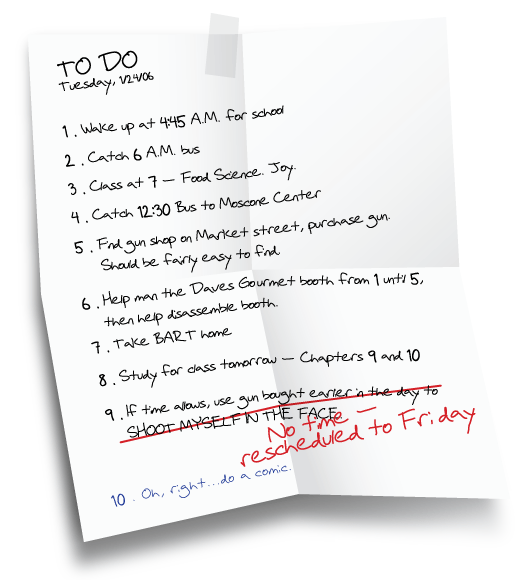 TO DO
Tuesday, 1/24/06
1. Wake up at 4:45 A.M. for school
2. Catch 6 A.M. bus
3. Class at 7 — Food Science. Joy.
4. Catch 12:30 Bus to Moscone Center
5. Find gun shop on Market street, purchase gun.
Should be fairly easy to find
6. Help man the Daves Gourmet booth from 1 until 5,
then help disassemble booth.
7. Take BART home
8. Study for class tomorrow — Chapters 9 and 10
9. If time allows, use gun bought earlier in the day to
SHOOT MYSELF IN THE FACE
No time —
rescheduled to Friday
10. Oh, right...do a comic.